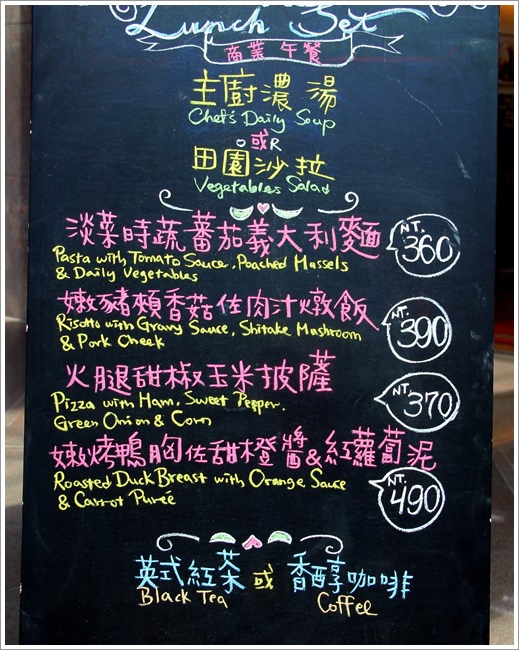 Lunch Set
商業午餐
主廚濃湯
Chef's Daily Soup
或OR
田園沙拉
Vegetables Salad
淡菜時蔬蕃茄義大利麵
NT. 360
Pasta with Tomato Sauce, Poached Mussels
& Daily Vegetables
嫩豬頰香菇佐肉汁燉飯
NT. 390
Risotto with Gravy Sauce, Shitake Mushroom
& Pork Cheek
火腿甜椒玉米披薩
NT. 370
Pizza with Ham, Sweet Pepper,
Green Onion & Corn
嫩烤鴨胸佐甜橙醬&紅蘿蔔泥
NT. 490
Roasted Duck Breast with Orange Sauce
& Carrot Pureé
英式紅茶 或 香醇咖啡
Black Tea Coffee